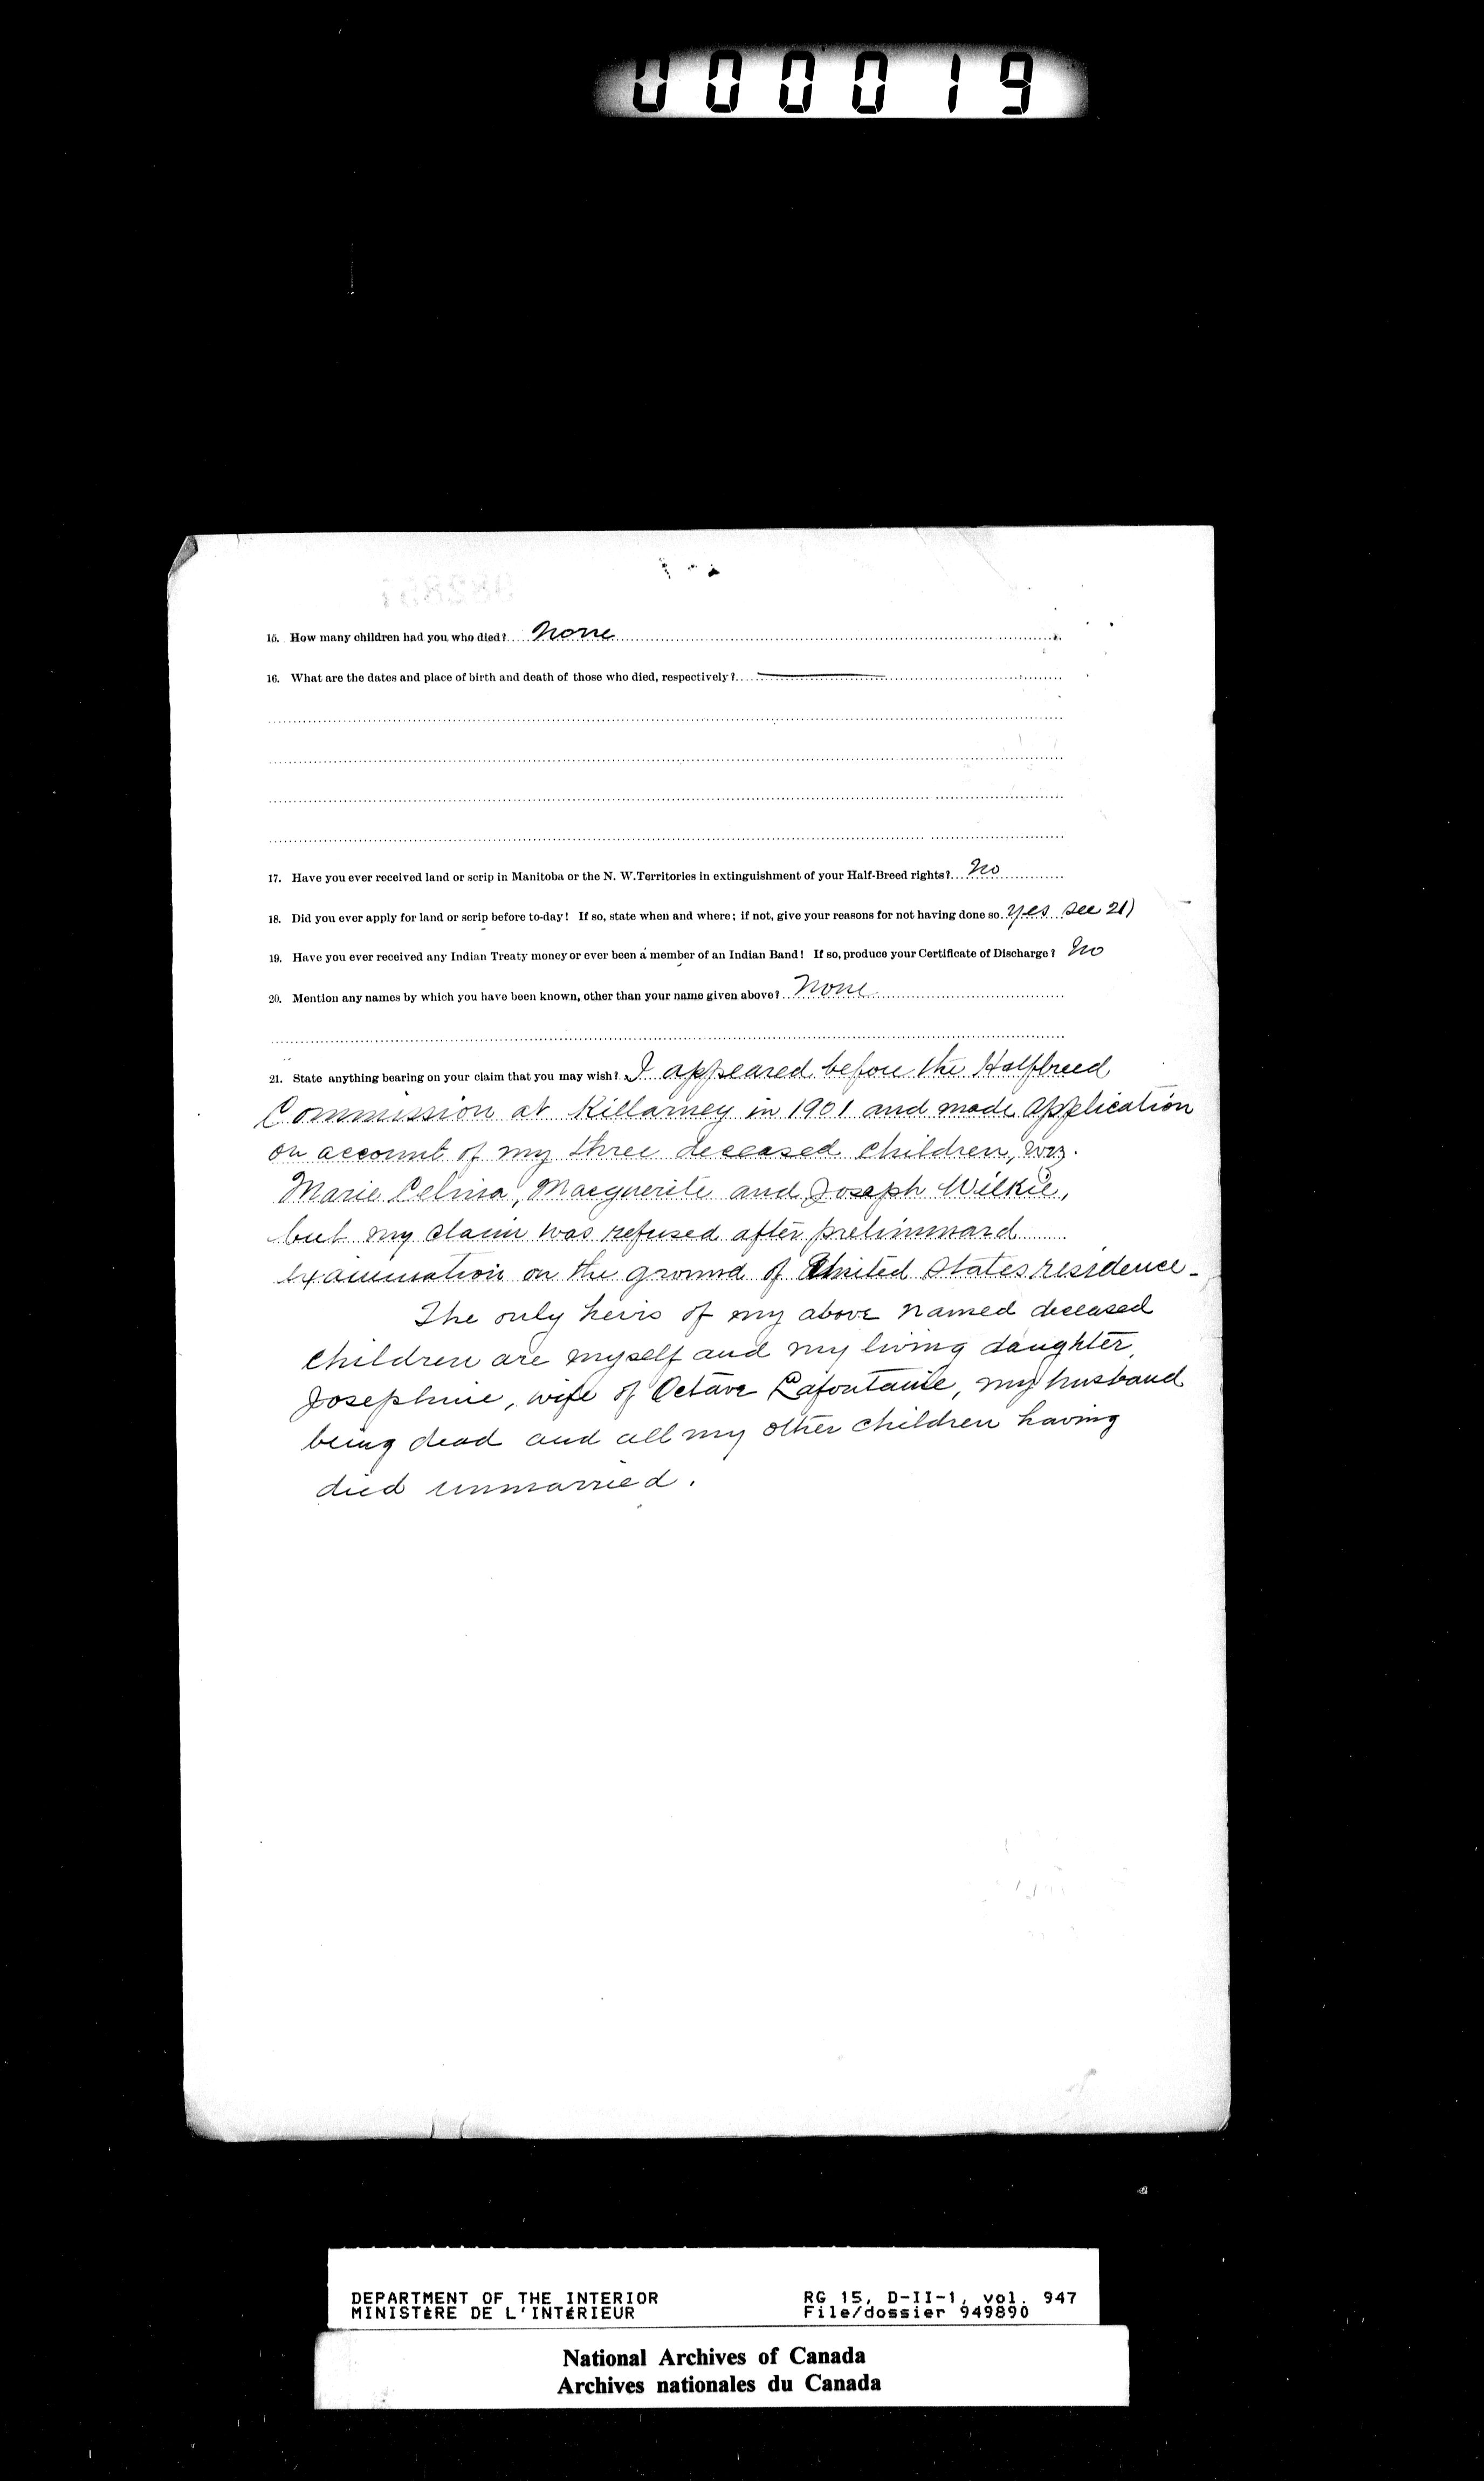 000019
15. How many children had you who died? None
16. What are the dates and place of birth and death of those who died, respectively?
17. Have you ever received land or scrip in Manitoba or the N. W. Territories in extinguishment of your Half-Breed rights? No
18. Did you ever apply for land or scrip before to-day! If so, state when and where; if not, give your reasons for not having done so. Yes see 21)
19. Have you ever received any Indian Treaty money or ever been a member of an Indian Band! If so, produce your Certificate of Discharge? No
20. Mention any names by which you have been known, other than your name given above? None
21. State anything bearing on your claim that you may wish? I appeared before the Halfbreed
Commission at Killarney in 1901 and made application
on account of my three deceased children, viz.
Marie Celina, Marguerite and Joseph Wilkie,
but my claim was refused after preliminard
examination on the ground of United States residence -
The only heirs of my above named deceased
children are myself and my living daughter,
Josephine, wife of Octave Lafontaine, my husband
being dead and all my other children having
died unmarried.
DEPARTMENT OF THE INTERIOR RG 15, D-II-1, vol. 947
MINISTÈRE DE L'INTÉRIEUR File/dossier 949890
National Archives of Canada
Archives nationales du Canada